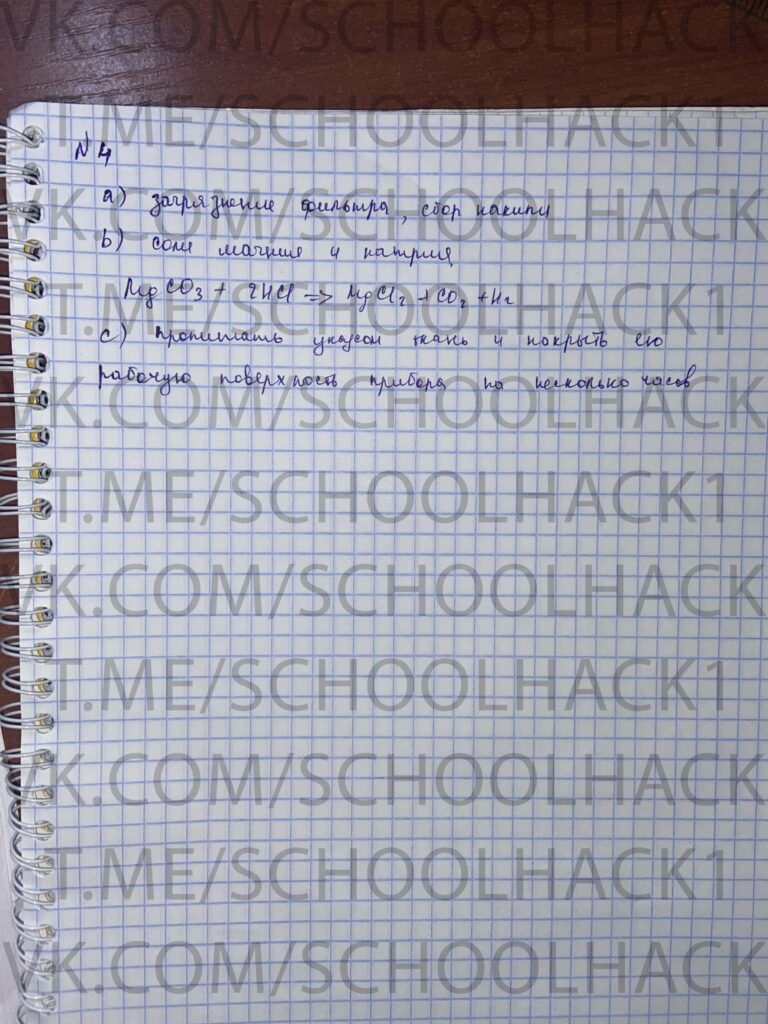 VK.COM/SCHOOLHACK
T.ME/SCHOOLHACK1
№4
a) загрязнение фильтра, сбор накипи
VK.COM/SCHOOLHACK
b) соли магния и натрия
MgCO3 + 2HCl => MgCl2 + CO2 + H2
T.ME/SCHOOLHACK1
c) пропитать уксусом ткань и покрыть ею
рабочую поверхность прибора на несколько часов
VK.COM/SCHOOLHACK
T.ME/SCHOOLHACK1
VK.COM/SCHOOLHACK
T.ME/SCHOOLHACK1
VK.COM/SCHOOLHACK
T.ME/SCHOOLHACK1
VK.COM/SCHOOLHACK